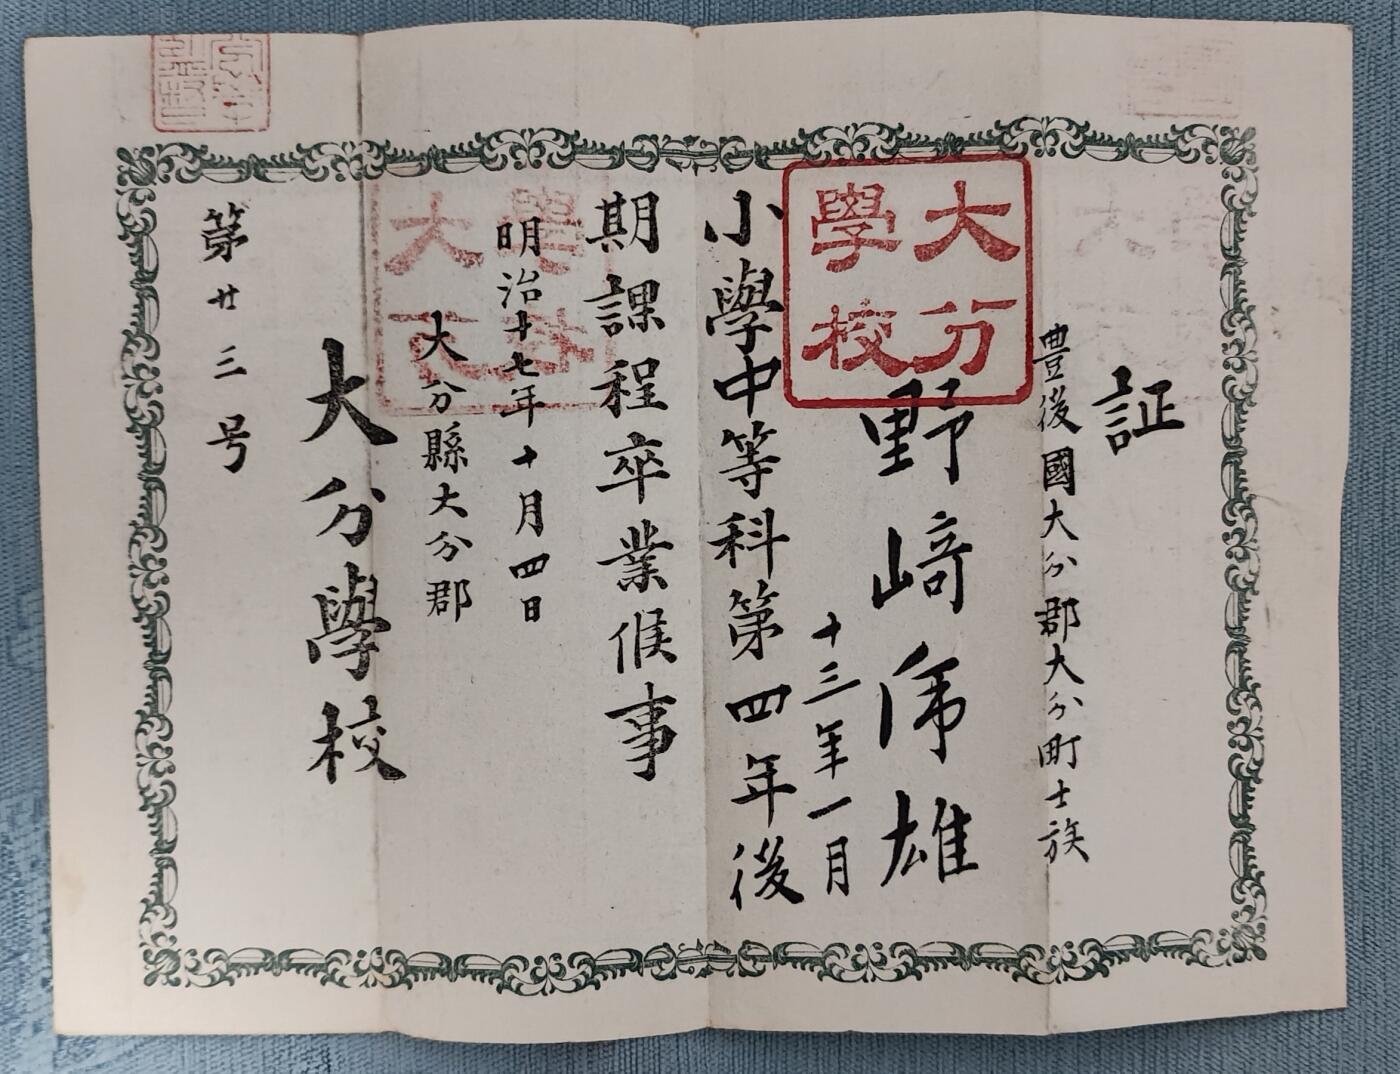 証
豊後國大分郡大分町士族
野﨑俤雄
十三年一月
小學中等科第四年後
期課程卒業候事
明治十七年十月四日
大分縣大分郡
大分學校
第廿三号
大分
學校